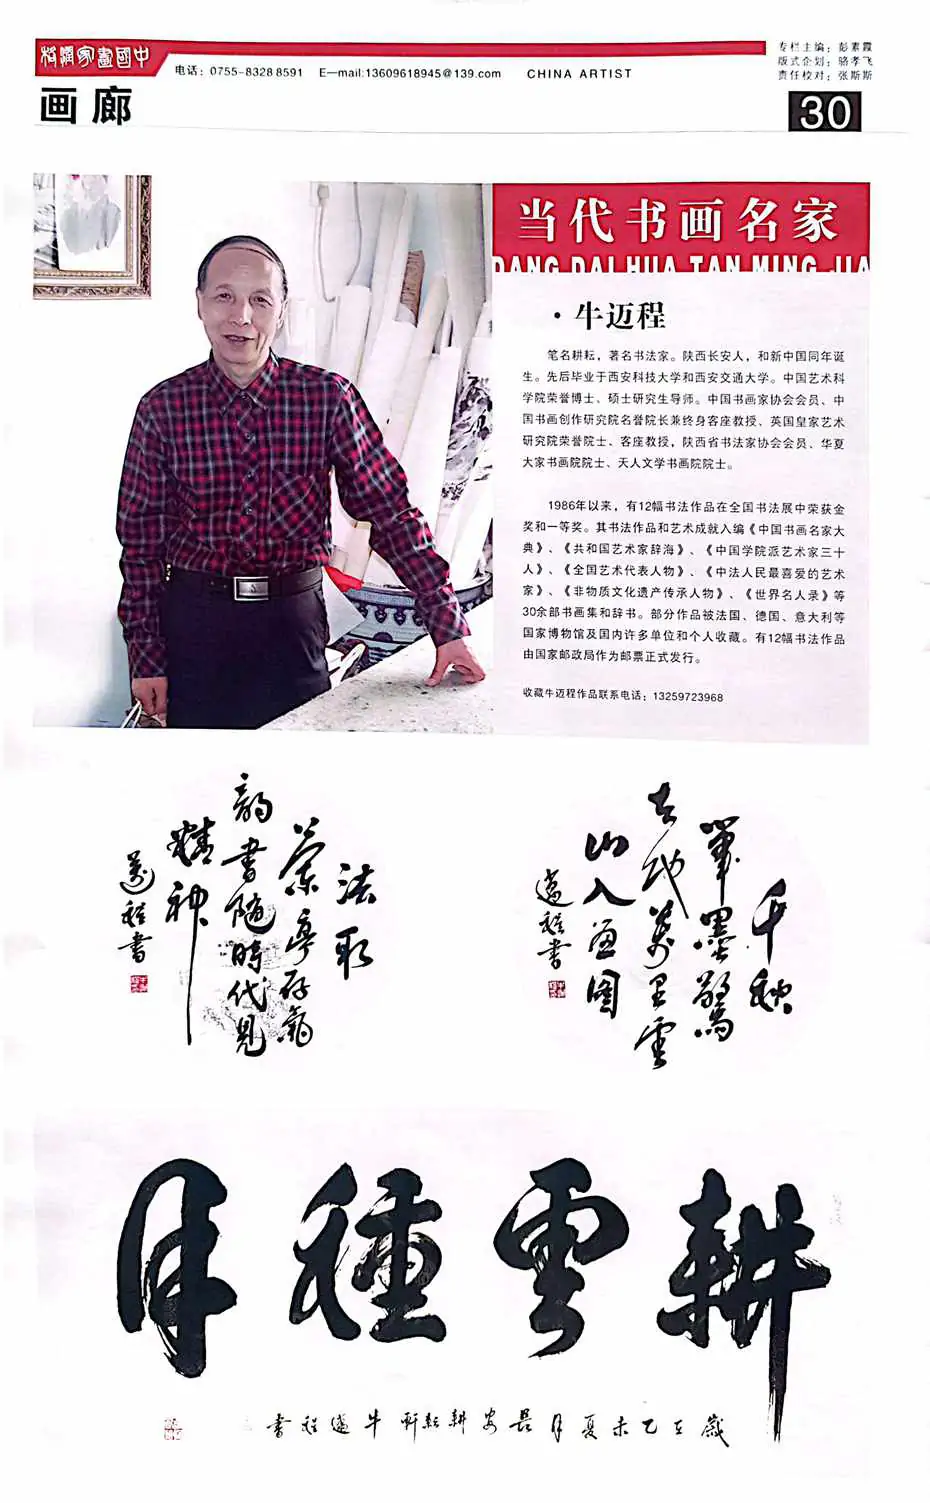 中國畫家潤格
电话：0755-8328 8591 E—mail:13609618945@139.com CHINA ARTIST
专栏主编：彭素霞
版式企划：骆孝飞
责任校对：张斯斯
画廊
30
当代书画名家
DANG DAI HUA TAN MING JIA
·牛迈程
笔名耕耘，著名书法家。陕西长安人，和新中国同年诞
生。先后毕业于西安科技大学和西安交通大学。中国艺术科
学院荣誉博士、硕士研究生导师。中国书画家协会会员、中
国书画创作研究院名誉院长兼终身客座教授、英国皇家艺术
研究院荣誉院士、客座教授，陕西省书法家协会会员、华夏
大家书画院院士、天人文学书画院院士。
1986年以来，有12幅书法作品在全国书法展中荣获金
奖和一等奖。其书法作品和艺术成就入编《中国书画名家大
典》、《共和国艺术家辞海》、《中国学院派艺术家三十
人》、《全国艺术代表人物》、《中法人民最喜爱的艺术
家》、《非物质文化遗产传承人物》、《世界名人录》等
30余部书画集和辞书。部分作品被法国、德国、意大利等
国家博物馆及国内许多单位和个人收藏。有12幅书法作品
由国家邮政局作为邮票正式发行。
收藏牛迈程作品联系电话：13259723968
法取
蘭亭存氣
韵書随時代見
精神
邁程書
千秋
筆墨驚
天地萬里雲
山入画图
邁程書
耕雲種月
歲在乙未夏月長安耕耘軒牛邁程書